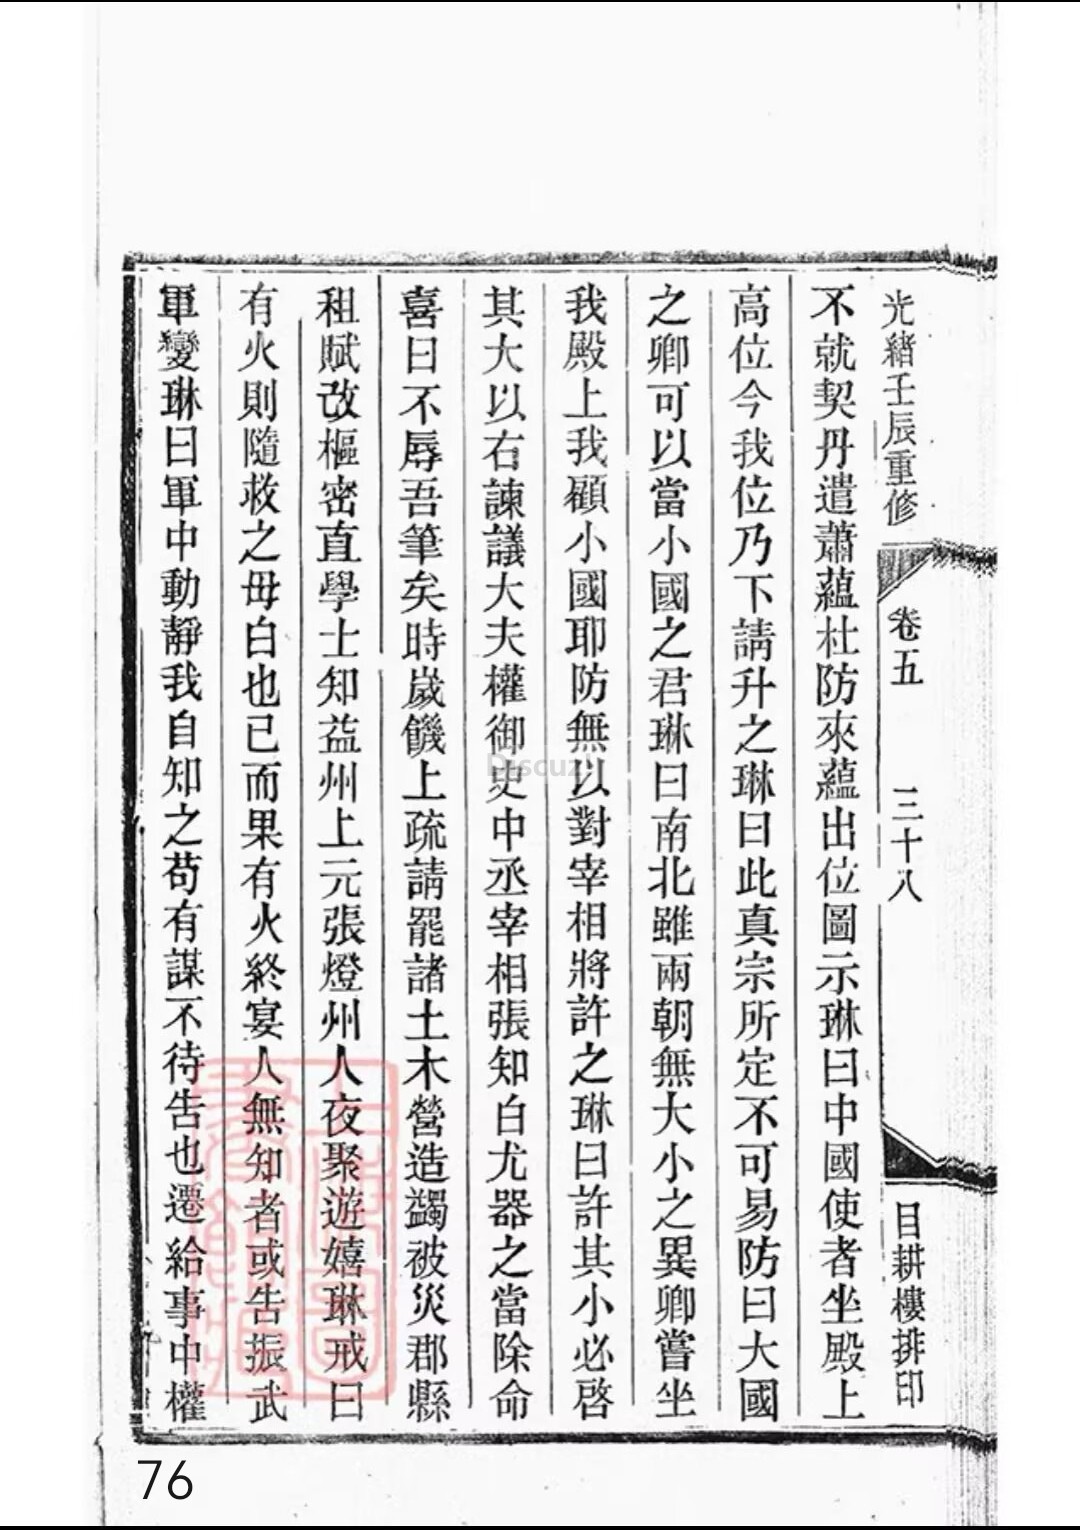 光緒壬辰重修
卷五
三十八
目耕樓排印
不就契丹遣蕭蘊杜防來蘊出位圖示琳曰中國使者坐殿上
高位今我位乃下請升之琳曰此真宗所定不可易防曰大國
之卿可以當小國之君琳曰南北雖兩朝無大小之異卿嘗坐
我殿上我顧小國耶防無以對宰相將許之琳曰許其小必啓
其大以右諫議大夫權御史中丞宰相張知白尤器之當除命
喜曰不辱吾筆矣時歲饑上疏請罷諸土木營造蠲被災郡縣
租賦改樞密直學士知益州上元張燈州人夜聚遊嬉琳戒曰
有火則隨救之毋白也已而果有火終宴人無知者或告振武
軍變琳曰軍中動靜我自知之苟有謀不待告也遷給事中權
Discuz!
76